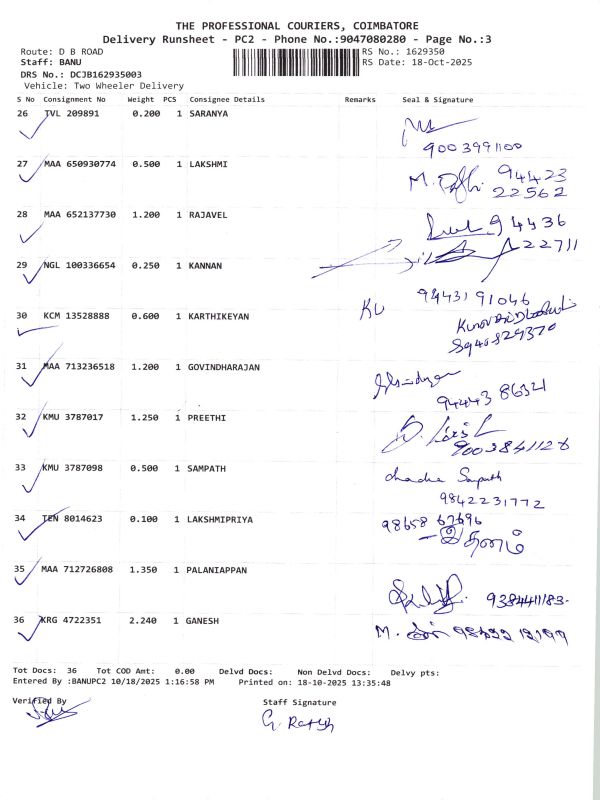 THE PROFESSIONAL COURIERS, COIMBATORE
Delivery Runsheet - PC2 - Phone No.:9047080280 - Page No.:3
Route: D B ROAD RS No.: 1629350
Staff: BANU RS Date: 18-Oct-2025
DRS No.: DCJB162935003
Vehicle: Two Wheeler Delivery
S No Consignment No Weight PCS Consignee Details Remarks Seal & Signature
26 TVL 209891 0.200 1 SARANYA
9003991100
27 MAA 650930774 0.500 1 LAKSHMI
94423
22562
28 MAA 652137730 1.200 1 RAJAVEL
94436
22711
29 NGL 100336654 0.250 1 KANNAN
94431 91046
30 KCM 13528888 0.600 1 KARTHIKEYAN
31 MAA 713236518 1.200 1 GOVINDHARAJAN
94443 86321
32 KMU 3787017 1.250 1 PREETHI
33 KMU 3787098 0.500 1 SAMPATH
Sampath
9842231772
34 TEN 8014623 0.100 1 LAKSHMIPRIYA
98658 67696
35 MAA 712726808 1.350 1 PALANIAPPAN
36 KRG 4722351 2.240 1 GANESH
Tot Docs: 36 Tot COD Amt: 0.00 Delvd Docs: Non Delvd Docs: Delvy pts:
Entered By :BANUPC2 10/18/2025 1:16:58 PM Printed on: 18-10-2025 13:35:48
Verified By Staff Signature